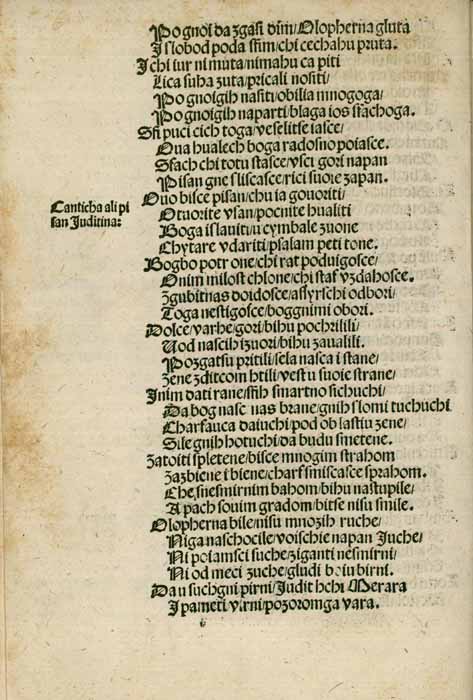 Po gnoi da zgasi dim/Olopherna gluta
I slobod poda stim/chi cechahu pruta.
I chi iur ni muta/nimahu ca piti
Lica suha zuta/pricali nositi/
Po gnoigih nasiti/obilia mnogoga/
Po gnoigih naparti/blaga ios stachoga.
Sfi puci cich toga/veselitse iasce/
Oua hualech boga radosno poiasce.
Sfach chi totu stasce/vsci gori napan
Pisan gne sliscasce/rici suoie zapan.
Ouo bisce pisan/chu ia gouoriti/
Canticha ali pi
san Juditina:
Otuorite vsan/pocnite hualiti
Boga islauiti/u cymbale zuone
Chytare vdariti/psalam peti tone.
Bogbo potr one/chi rat poduigosce/
Onim milost chlone/chi staf vzdahosce.
Zgubitnas doidosce/assyrschi odbori/
Toga nestigosce/boggnimi obori.
Dolce/varhe/gori/bihu pochrilili/
Uod nascih izuori/bihu zaualili.
Pozgatsu pritili/sela nasca i stane/
Zene zditcom htili/vest u suoie strane/
Inim dati rane/sfih smartno sichuchi/
Da bog nasc nas brane/gnih slomi tuchuchi
Charfauca daiuchi/pod oblastiu zene/
Sile gnih hotuchi/da budu smetene.
Zatoiti spletene/bisce mnogim strahom
Zazbiene i biene/charf smiscasce sprahom.
Che/snesmirnim bahom/bihu nastupile/
A pach souim gradom/bitse nisu smile.
Olopherna bile/nisu mnozih ruche/
Niga naschocile/voischie napan Juche/
Ni polamsci suche/ziganti nesmirni/
Ni od meci zuche/gludi boiu birni.
Da u suchgni pirni/Judit hchi Merara
I pameti virni/pozoromga vara.